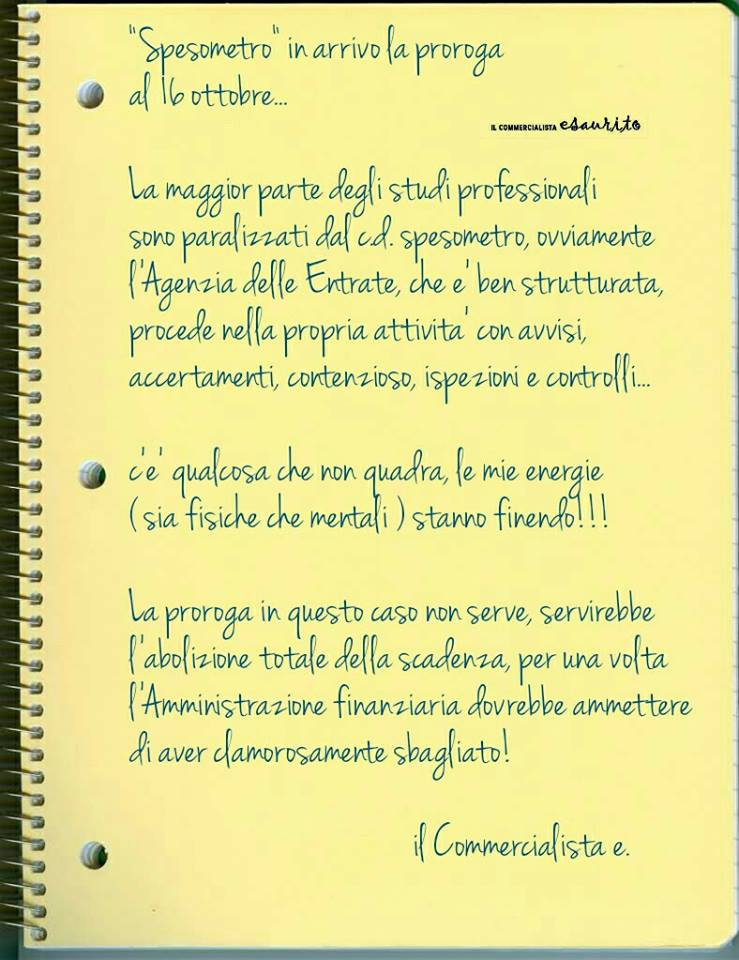 "Spesometro" in arrivo la proroga
al 16 ottobre...
IL COMMERCIALISTA esaurito
La maggior parte degli studi professionali
sono paralizzati dal c.d. spesometro, ovviamente
l'Agenzia delle Entrate, che e' ben strutturata,
procede nella propria attivita' con avvisi,
accertamenti, contenzioso, ispezioni e controlli...
c'e' qualcosa che non quadra, le mie energie
( sia fisiche che mentali ) stanno finendo!!!
La proroga in questo caso non serve, servirebbe
l'abolizione totale della scadenza, per una volta
l'Amministrazione finanziaria dovrebbe ammettere
di aver clamorosamente sbagliato!
il Commercialista e.